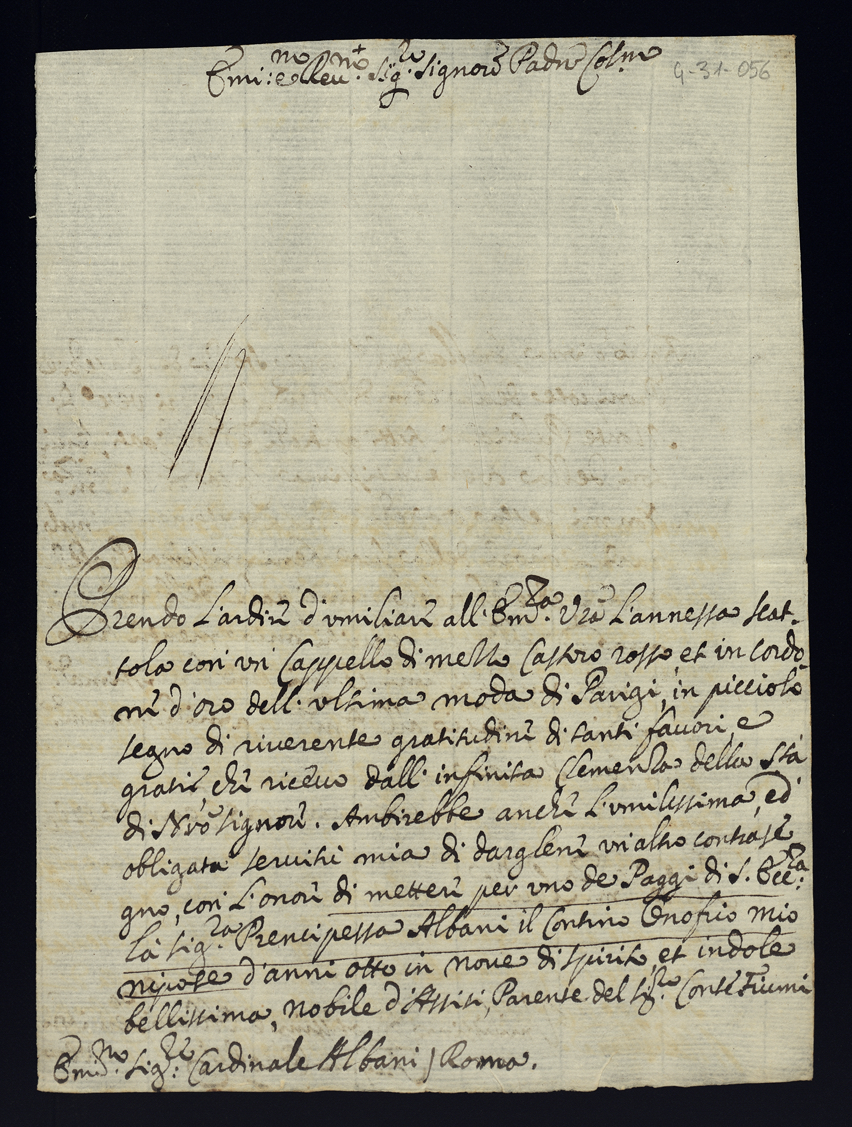 Emi:no e Reu:mo Sig:re Signore Padne Colmo
9-31-056
Prendo l'ardire d'vmiliare all'Em:za Vrã l'annessa scat-
tola con vn Cappello di mezzo Castoro rosso et in cordo
ni d'oro dell'vltima moda di Parigi, in picciolo
segno di riuerente gratitudine di tanti fauori, e
gratie che riceuo dall'infinita Clemenza della Stà
di Nrõ Signore. Ambirebbe anche l'vmilissima, ed
obligata seruitù mia di dargliene vn'altro contrase
gno, con l'onore di mettere per vno de Paggi di S. Ecc:za
la Sig:ra Prencipessa Albani il Contino Onofrio mio
nipote d'anni otto in noue di spirito, et indole
bellissima, nobile d'Assisi, Parente del Sig:re Conte Fiumi
Emi:no Sig:re Cardinale Albani / Roma.